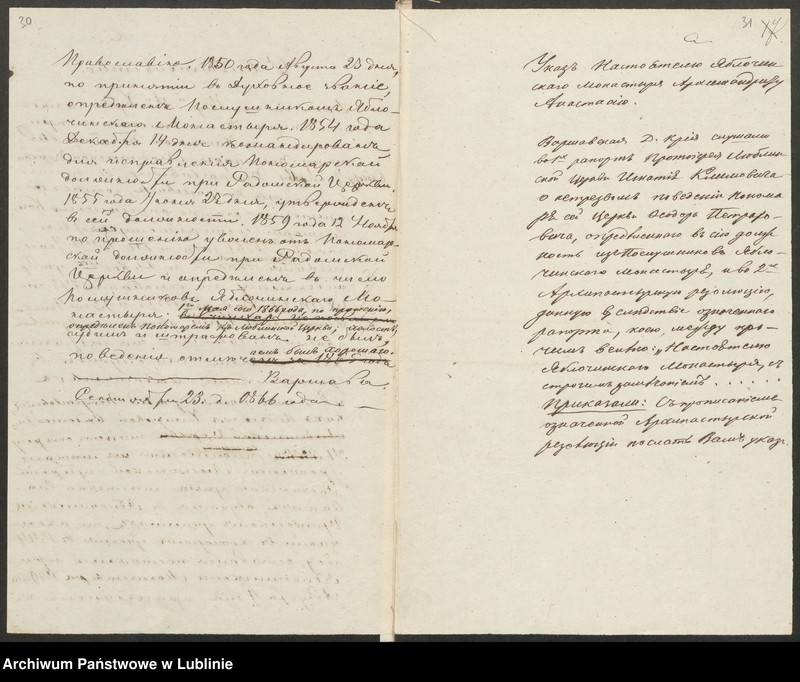 30
Православію. 1850 года Августа 23 дня,
по принятіи въ духовное званіе,
опредѣленъ Послушникомъ Ябло-
чинскаго Монастыря. 1854 года
Декабря 14 дня командированъ
для исправленія Пономарской
должности при Радомской Церкви.
1855 года Іюня 22 дня, утвержденъ
въ сей должности. 1859 года 12 Ноября
по прошенію уволенъ отъ Пономар-
ской должности при Радомской
Церкви и опредѣленъ въ число
Послушниковъ Яблочинскаго Мо-
настыря. 1го Мая сего 1866 года, по прошенію,
опредѣленъ Пономаремъ къ Люблинской Церкви, холостъ,
судимъ и штрафованъ не былъ,
поведенія отлич
аемъ былъ хорошаго.
Варшава
23. д. 1866 года.
31
Указъ Настоятелю Яблочин
скаго Монастыря Архимандриту
Анастасію.
Варшавская Д. Крія слушали
во 1х рапортъ Протоіерея Люблин
ской Церкви Игнатія Климовича
о нетрезвомъ поведеніи Понома
ря сей Церкви Ѳеодора Петраро-
вича, опредѣленнаго въ сію долж
ность изъ Послушниковъ Ябло-
чинскаго Монастыря, и во 2хъ
Архипастырскую резолюцію,
данную въ слѣдствіе означеннаго
рапорта, коею, между про-
чимъ велѣно: „Настоятелю
Яблочинскаго Монастыря, съ
строгимъ замѣчаніемъ . . . . . .
Приказали: Съ прописаніемъ
означенной Архипастырской
резолюціи послать Вамъ указъ.
Archiwum Państwowe w Lublinie